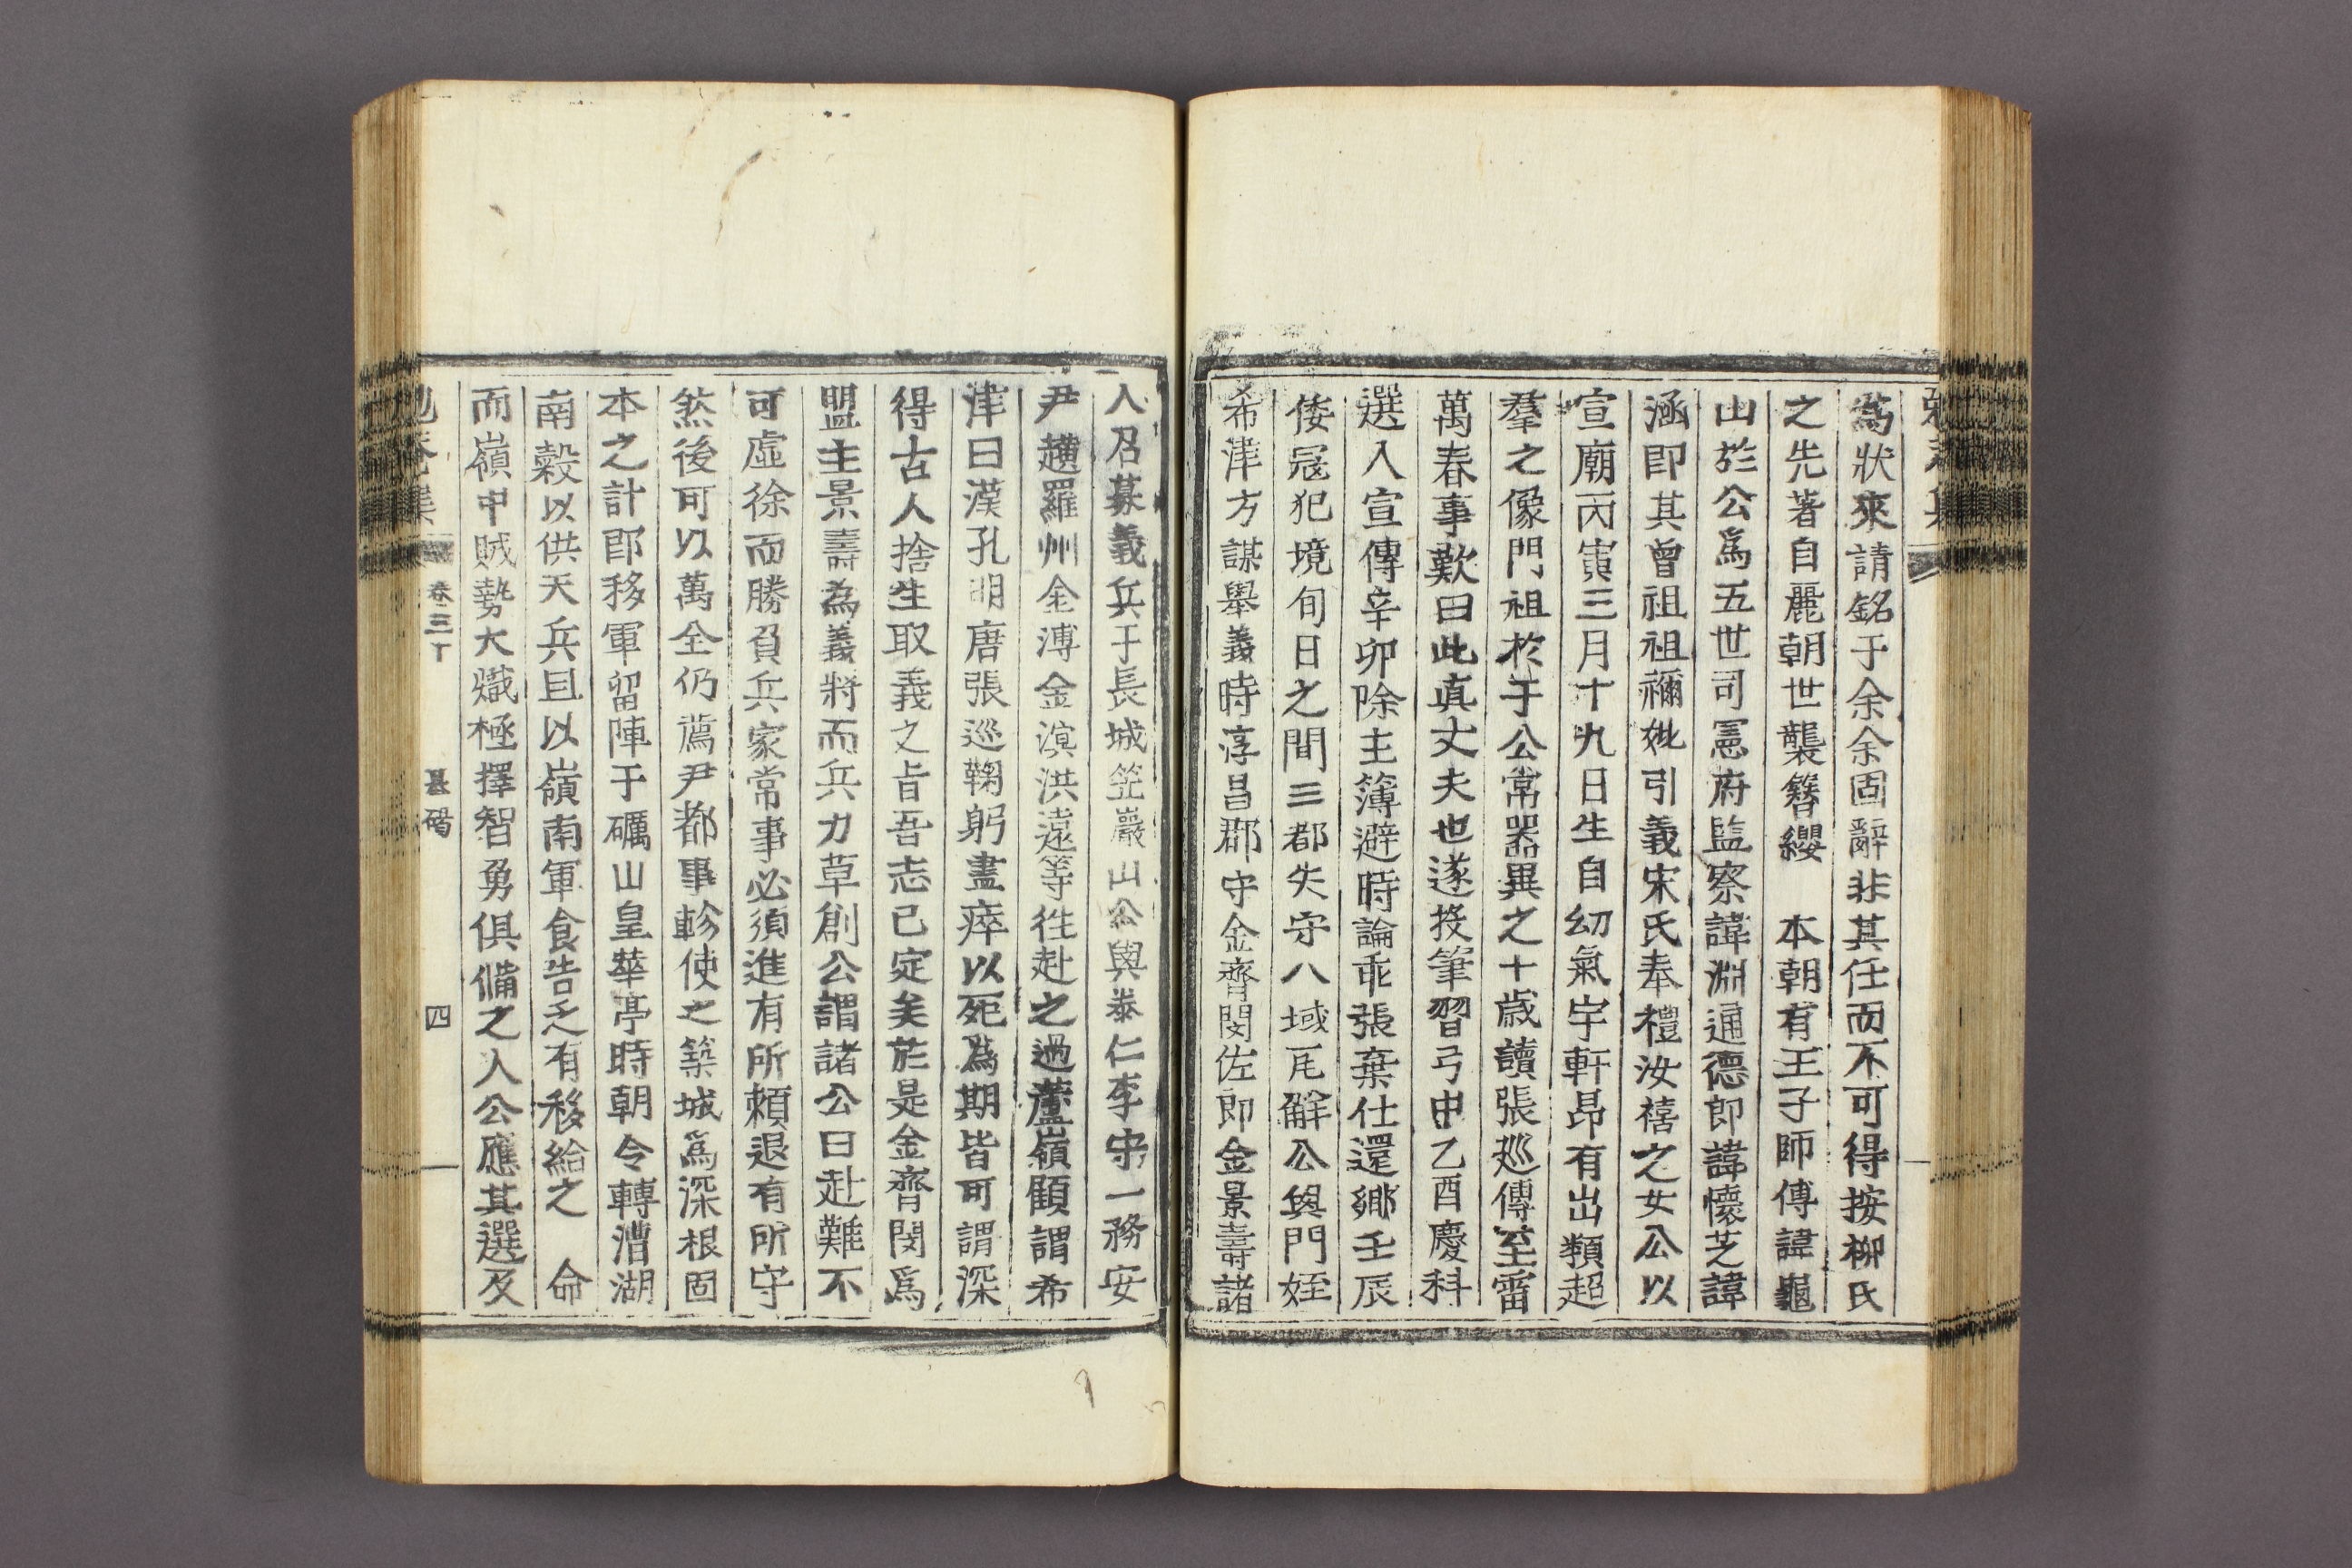 爲狀來請銘于余余固辭非其任而不可得按柳氏
之先著自麗朝世襲簪纓　本朝有王子師傅諱龜
山於公爲五世司憲府監察諱淵通德郎諱懷芝諱
涵卽其曾祖祖禰妣引義宋氏奉禮汝禧之女公以
宣廟丙寅三月十九日生自幼氣宇軒昂有出類超
羣之像門祖於于公常器異之十歲讀張廵傳至雷
萬春事歎曰此真丈夫也遂投筆習弓中乙酉慶科
選入宣傳辛卯除主簿避時論乖張棄仕還鄉壬辰
倭寇犯境旬日之間三都失守八域瓦解公與門姪
希津方謀舉義時淳昌郡守金齊閔佐郎金景壽諸
人召募義兵于長城笠巖山公與泰仁李守一務安
尹趪羅州金溥金滉洪遠等徃赴之過蘆嶺顧謂希
津曰漢孔明唐張巡鞠躬盡瘁以死爲期皆可謂深
得古人捨生取義之旨吾志已定矣於是金齊閔爲
盟主景壽為義將而兵力草創公謂諸公曰赴難不
可虛徐而勝負兵家常事必須進有所賴退有所守
然後可以萬全仍薦尹都事軫使之築城爲深根固
本之計卽移軍留陣于礪山皇華亭時朝令轉漕湖
南穀以供天兵且以嶺南軍食告乏有移給之　命
而嶺中賊勢大熾極擇智勇俱備之人公應其選及
卷三下　墓碣　四